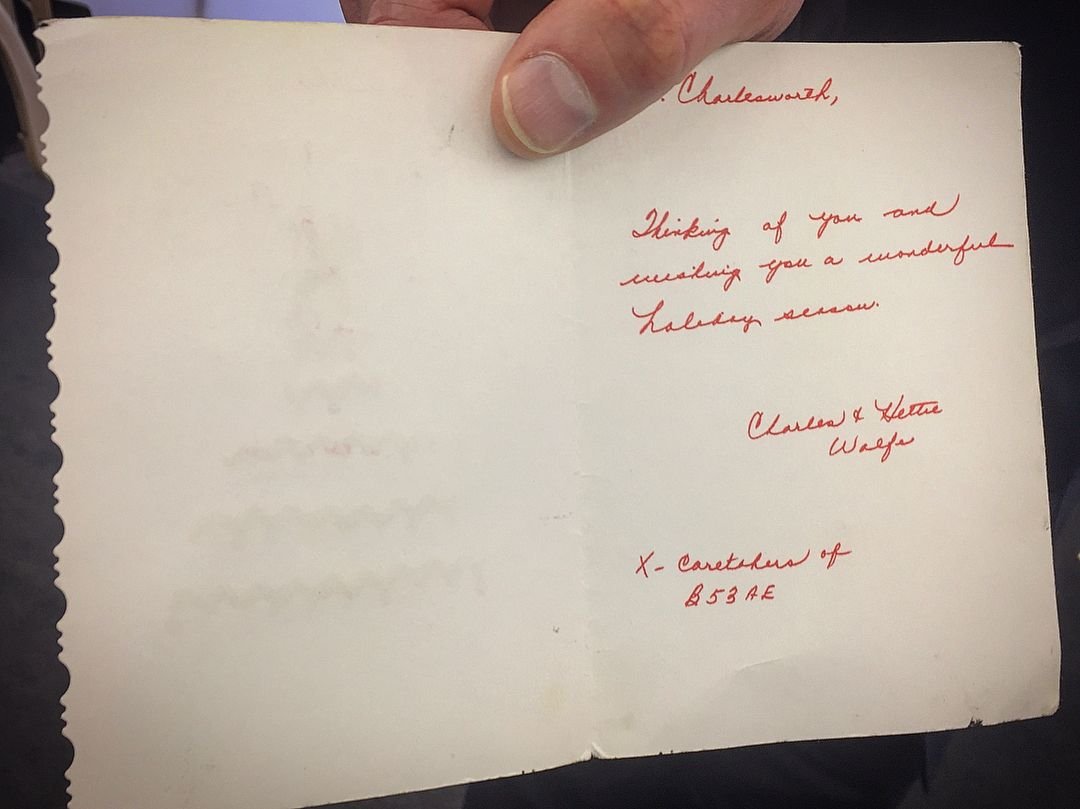 . Charlesworth,
Thinking of you and
wishing you a wonderful
holiday season.
Charles & Hettie
Wolfe
X- Caretakers of
B53AE